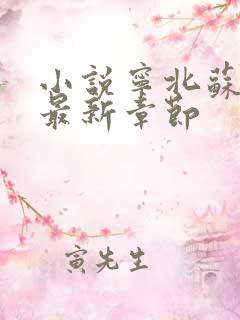 小說寧北蘇
最新章節
寅先生